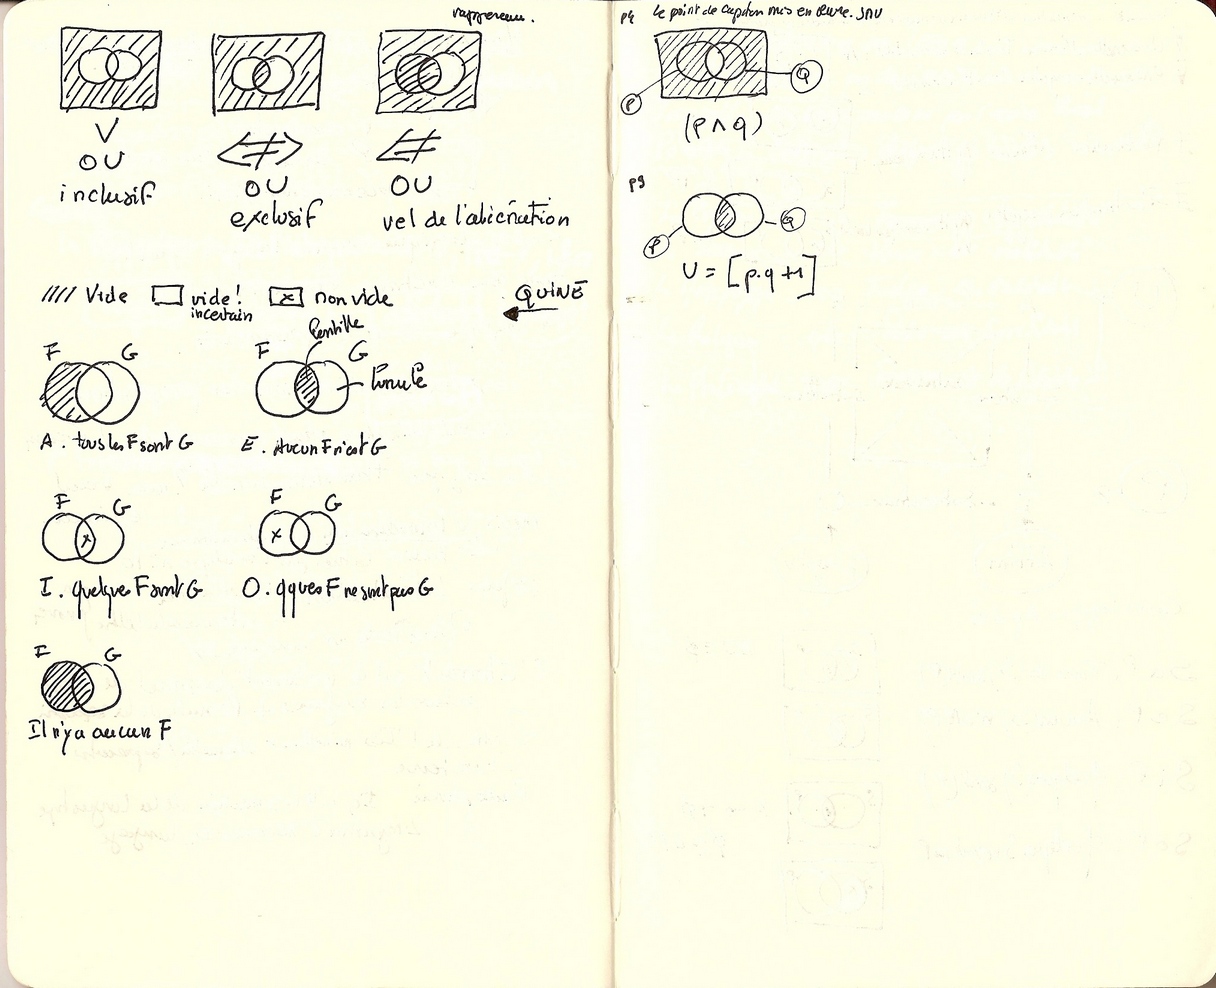 V
OU
inclusif
<≠>
OU
exclusif
<≠
OU
vel de l'aliénation
//// Vide
vide!
incertain
x non vide
QUINE
F G
A. tous les F sont G
F G
lentille
lunule
E. Aucun F n'est G
F G
x
I. quelques F sont G
F G
x
O. qques F ne sont pas G
F G
Il n'y a aucun F
p4 le point de capiton mis en œuvre. JMV
P
Q
(P ∧ q)
p9
P
Q
U = [p.q+1]